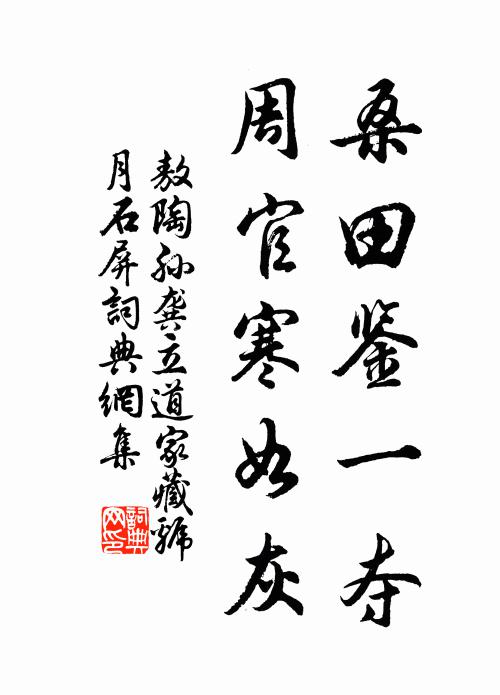 桑田鉴一夺
周官寒如灰
敖陶孙龚立道家藏號
月石屏詞典網集
詞典网印